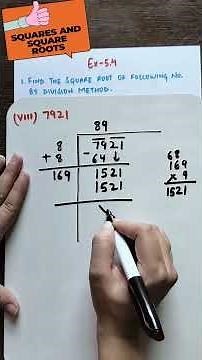 SQUARES AND
SQUARE
ROOTS
Ex-5.4
1. FIND THE SQUARE ROOT OF FOLLOWING NO.
BY DIVISION METHOD.
(VIII) 7921
89
8 7921
+ 8 -64 ↓
169 1521
1521
68
169
× 9
1521